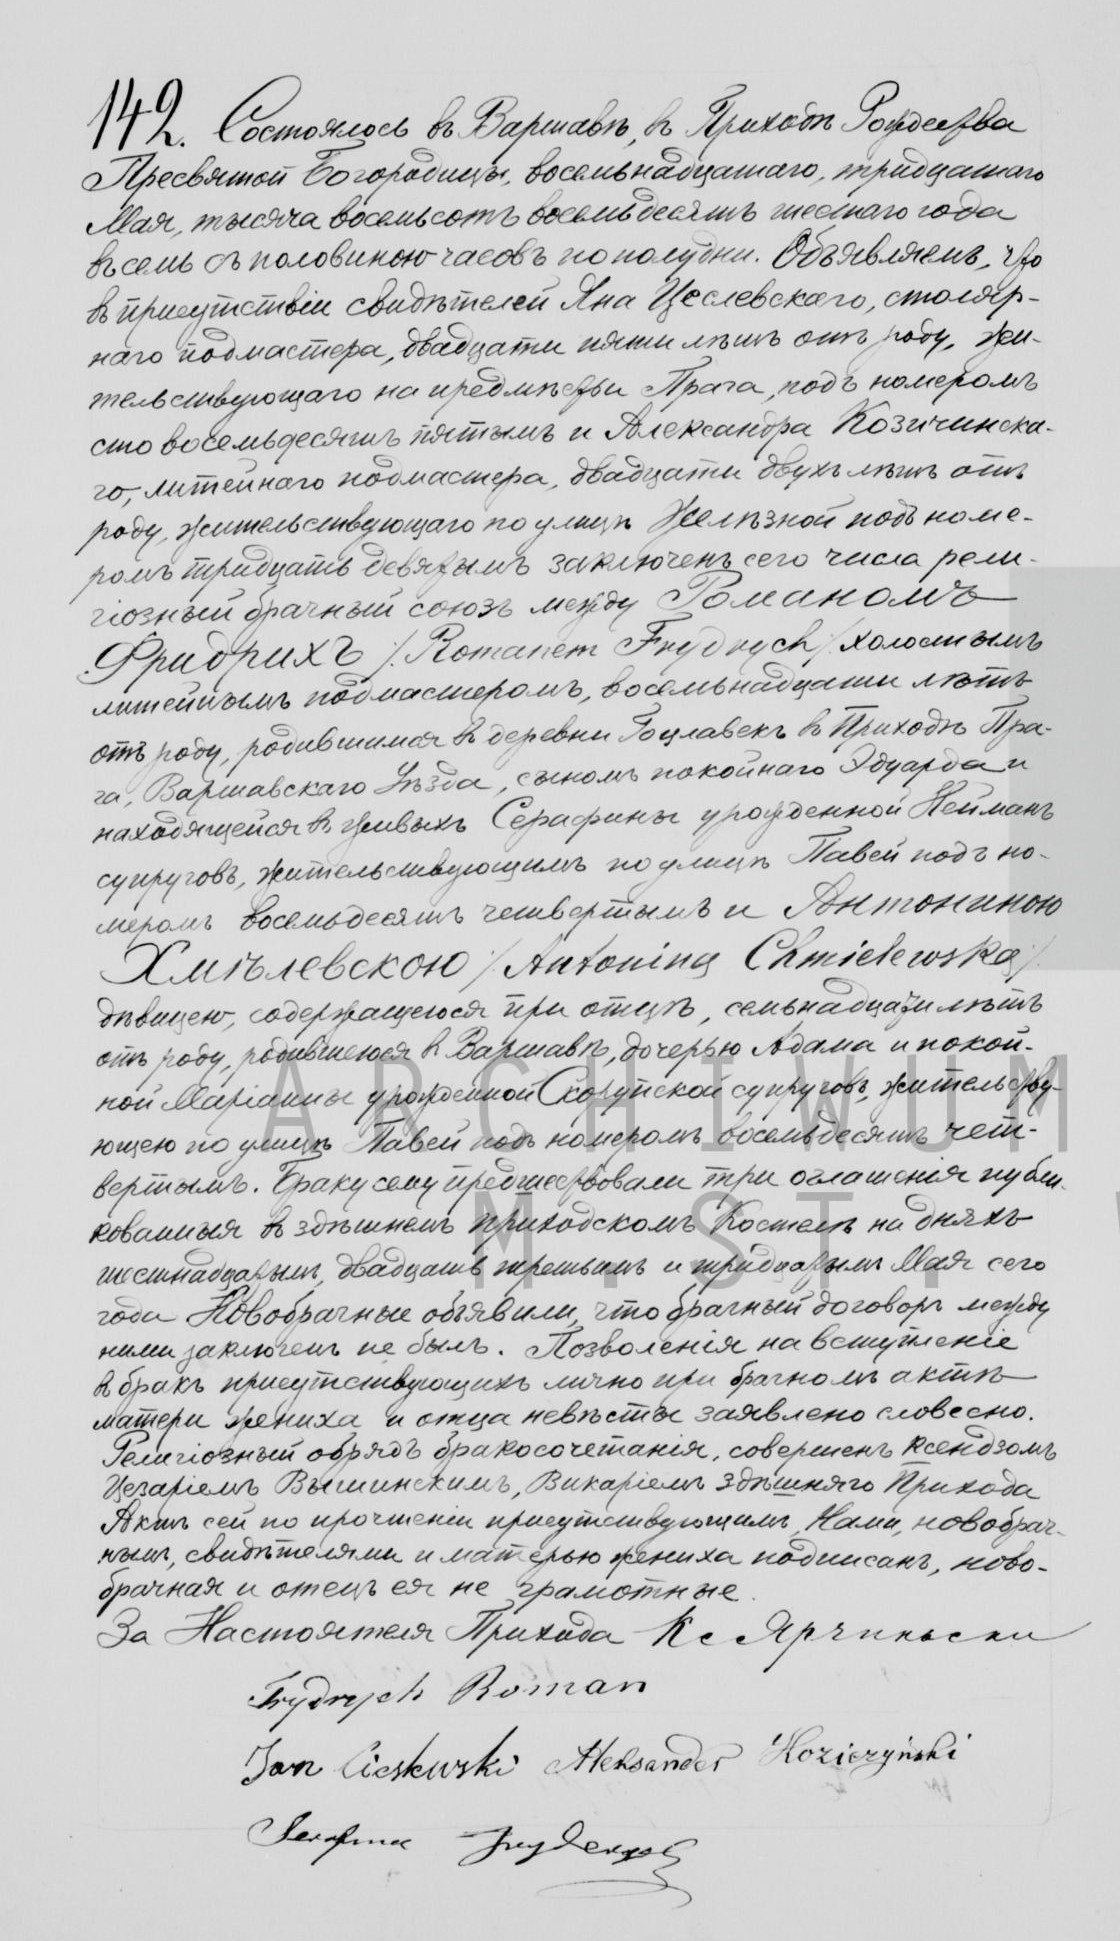 142. Состоялось въ Варшавѣ, въ Приходѣ Рождества
Пресвятой Богородицы, восемьнадцатаго, тридцатаго
Мая, тысяча восемьсотъ восемьдесятъ шестаго года
въ семь съ половиною часовъ по полудни. Объявляемъ, что
въ присутствіи свидѣтелей Яна Цеслевскаго, столяр-
наго подмастера, двадцати пяти лѣтъ отъ роду, жи-
тельствующаго на предмѣстьи Прага, подъ номеромъ
сто восемьдесятъ пятымъ и Александра Козичинска-
го, литейнаго подмастера, двадцати двухъ лѣтъ отъ
роду, жительствующаго по улицѣ Желѣзной подъ номе-
ромъ тридцать девятымъ заключенъ сего числа рели-
гіозный брачный союзъ между Романомъ
Фридрихъ /. Romanem Frydrych / холостымъ
литейнымъ подмастеромъ, восемьнадцати лѣтъ
отъ роду, родившимся въ деревни Гоцлавекъ въ Приходѣ Пра-
га, Варшавскаго Уѣзда, сыномъ покойнаго Эдуарда и
находящейся въ живыхъ Серафины урожденной Нейманъ
супруговъ, жительствующимъ по улицѣ Павей подъ но-
меромъ восемьдесятъ четвертымъ и Антониною
Хмѣлевскою /. Antoniną Chmielewską /.
дѣвицею, содержащеюся при отцѣ, семьнадцати лѣтъ
отъ роду, родившеюся въ Варшавѣ, дочерью Адама и покой-
ной Маріанны урожденной Скорупской супруговъ, жительству-
ющею по улицѣ Павей подъ номеромъ восемьдесятъ чет-
вертымъ. Браку сему предшествовали три оглашенія публи-
кованныя въ здѣшнемъ приходскомъ Костелѣ на дняхъ
шестнадцатымъ, двадцать третьимъ и тридцатымъ Мая сего
года Новобрачные объявили, что брачный договоръ между
ними заключенъ не былъ. Позволенія на вступленіе
въ бракъ присутствующихъ лично при брачномъ актѣ
матери жениха и отца невѣсты заявлено словесно.
Религіозный обрядъ бракосочетанія, совершенъ ксендзомъ
Цезаріемъ Вышинскимъ, Викаріемъ здѣшняго Прихода
Актъ сей по прочтеніи присутствующимъ, Нами, новобрач-
нымъ, свидѣтелями и матерью жениха подписанъ, ново-
брачная и отецъ ея не грамотные.
За Настоятеля Прихода Кс Ярчиньски
Frydrych Roman
Jan Cieslewski Aleksander Koziczyński
Serafina Frydrych
ARCHIWUM
M ST